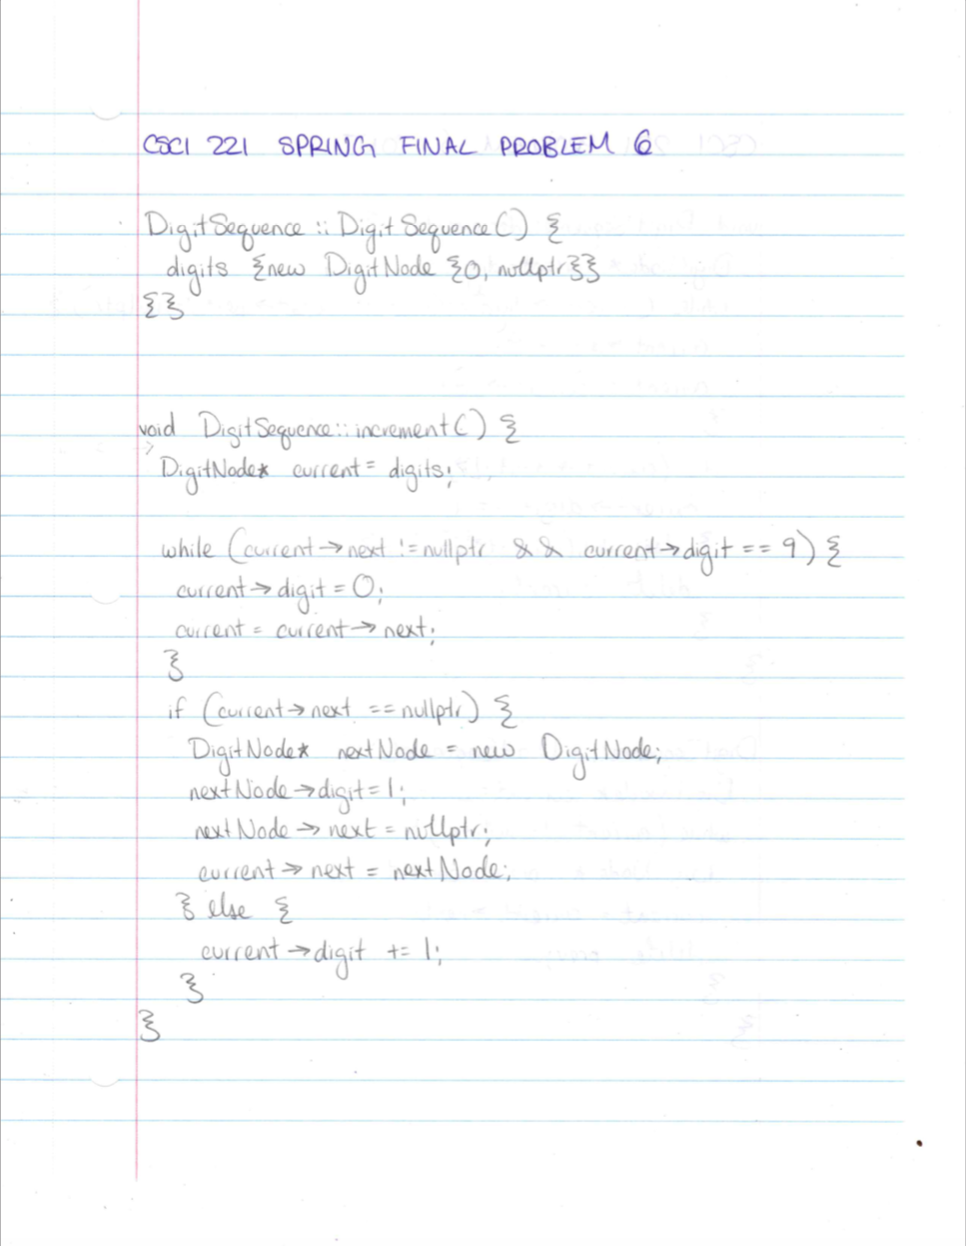 CSCI 221 SPRING FINAL PROBLEM 6
DigitSequence :: DigitSequence() {
digits {new DigitNode {0, nullptr}}
{}}
void DigitSequence::increment() {
DigitNode* current = digits;
while (current->next != nullptr && current->digit == 9) {
current->digit = 0;
current = current->next;
}
if (current->next == nullptr) {
DigitNode* nextNode = new DigitNode;
nextNode->digit=1;
nextNode->next = nullptr;
current->next = nextNode;
} else {
current->digit += 1;
}
}